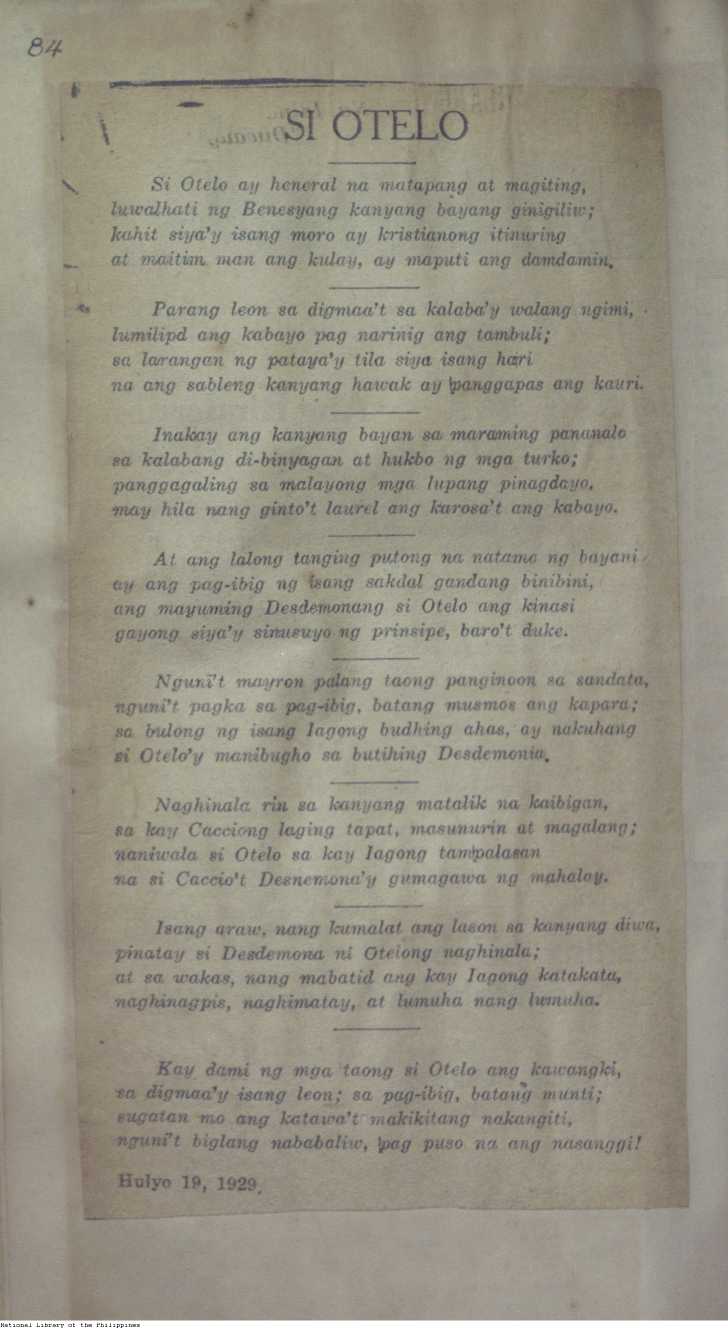 84
SI OTELO
Si Otelo ay heneral na matapang at magiting,
luwalhati ng Benesyang kanyang bayang ginigiliw;
kahit siya'y isang moro ay kristianong itinuring
at maitim man ang kulay, ay maputi ang damdamin.
Parang leon sa digmaa't sa kalaba'y walang ngimi,
lumilipd ang kabayo pag narinig ang tambuli;
sa larangan ng pataya'y tila siya isang hari
na ang sableng kanyang hawak ay 'panggapas ang kauri.
Inakay ang kanyang bayan sa maraming pananalo
sa kalabang di-binyagan at hukbo ng mga turko;
panggagaling sa malayong mga lupang pinagdayo,
may hila nang ginto't laurel ang karosa't ang kabayo.
At ang lalong tanging putong na natamo ng bayani
ay ang pag-ibig ng isang sakdal gandang binibini,
ang mayuming Desdemonang si Otelo ang kinasi
gayong siya'y sinusuyo ng prinsipe, baro't duke.
Nguni't mayron palang taong panginoon sa sandata,
nguni't pagka sa pag-ibig, batang musmos ang kapara;
sa bulong ng isang Iagong budhing ahas, ay nakuhang
si Otelo'y manibugho sa butihing Desdemonia.
Naghinala rin sa kanyang matalik na kaibigan,
sa kay Cacciong laging tapat, masunurin at magalang;
naniwala si Otelo sa kay Iagong tampalasan
na si Caccio't Desnemona'y gumagawa ng mahalay.
Isang araw, nang kumalat ang lason sa kanyang diwa,
pinatay si Desdemona ni Oteiong naghinala;
at sa wakas, nang mabatid ang kay Iagong katakata,
naghinagpis, naghimatay, at lumuha nang lumuha.
Kay dami ng mga taong si Otelo ang kawangki,
sa digmaa'y isang leon; sa pag-ibig, batang munti;
sugatan mo ang katawa't makikitang nakangiti,
nguni't biglang nababaliw, 'pag puso na ang nasanggi!
Hulyo 19, 1929.
National Library of the Philippines